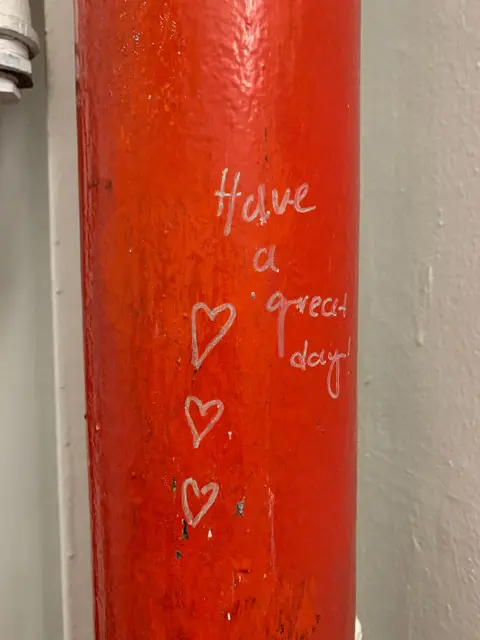 Have
a
great
day!